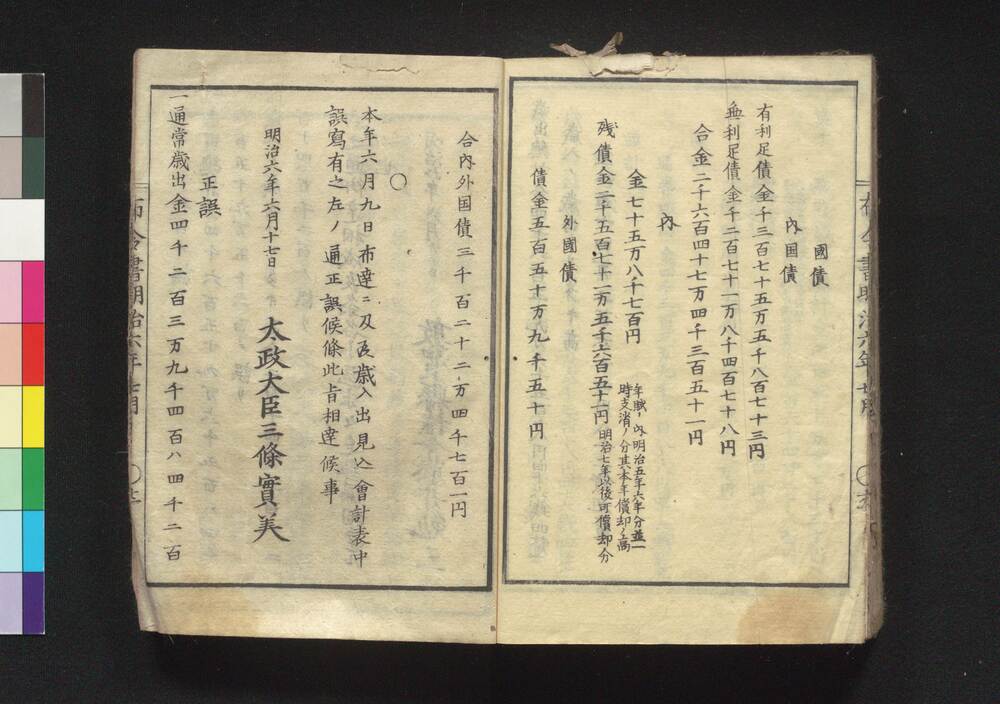 國債
內国債
有利足債金千三百七十五万五千八百七十三円
無利足債金千二百七十一万八千四百七十八円
合金二千六百四十七万四千三百五十一円
內
金七十五万八千七百円
年賦ノ內明治五年六年分並一
時支消ノ分其本年償却ノ高
残債金二千五百七十一万五千六百五十一円
明治七年以後可償却ノ分
外國債
債金五百五十万九千五十円
合內外国債三千百二十二万四千七百一円
〇
本年六月九日布達ニ及候歳入出見込會計表中
誤寫有之左ノ通正誤候條此旨相達候事
明治六年六月十七日
太政大臣三條實美
正誤
一通常歳出金四千二百三万九千四百八四千二百
布令書明治六年七月